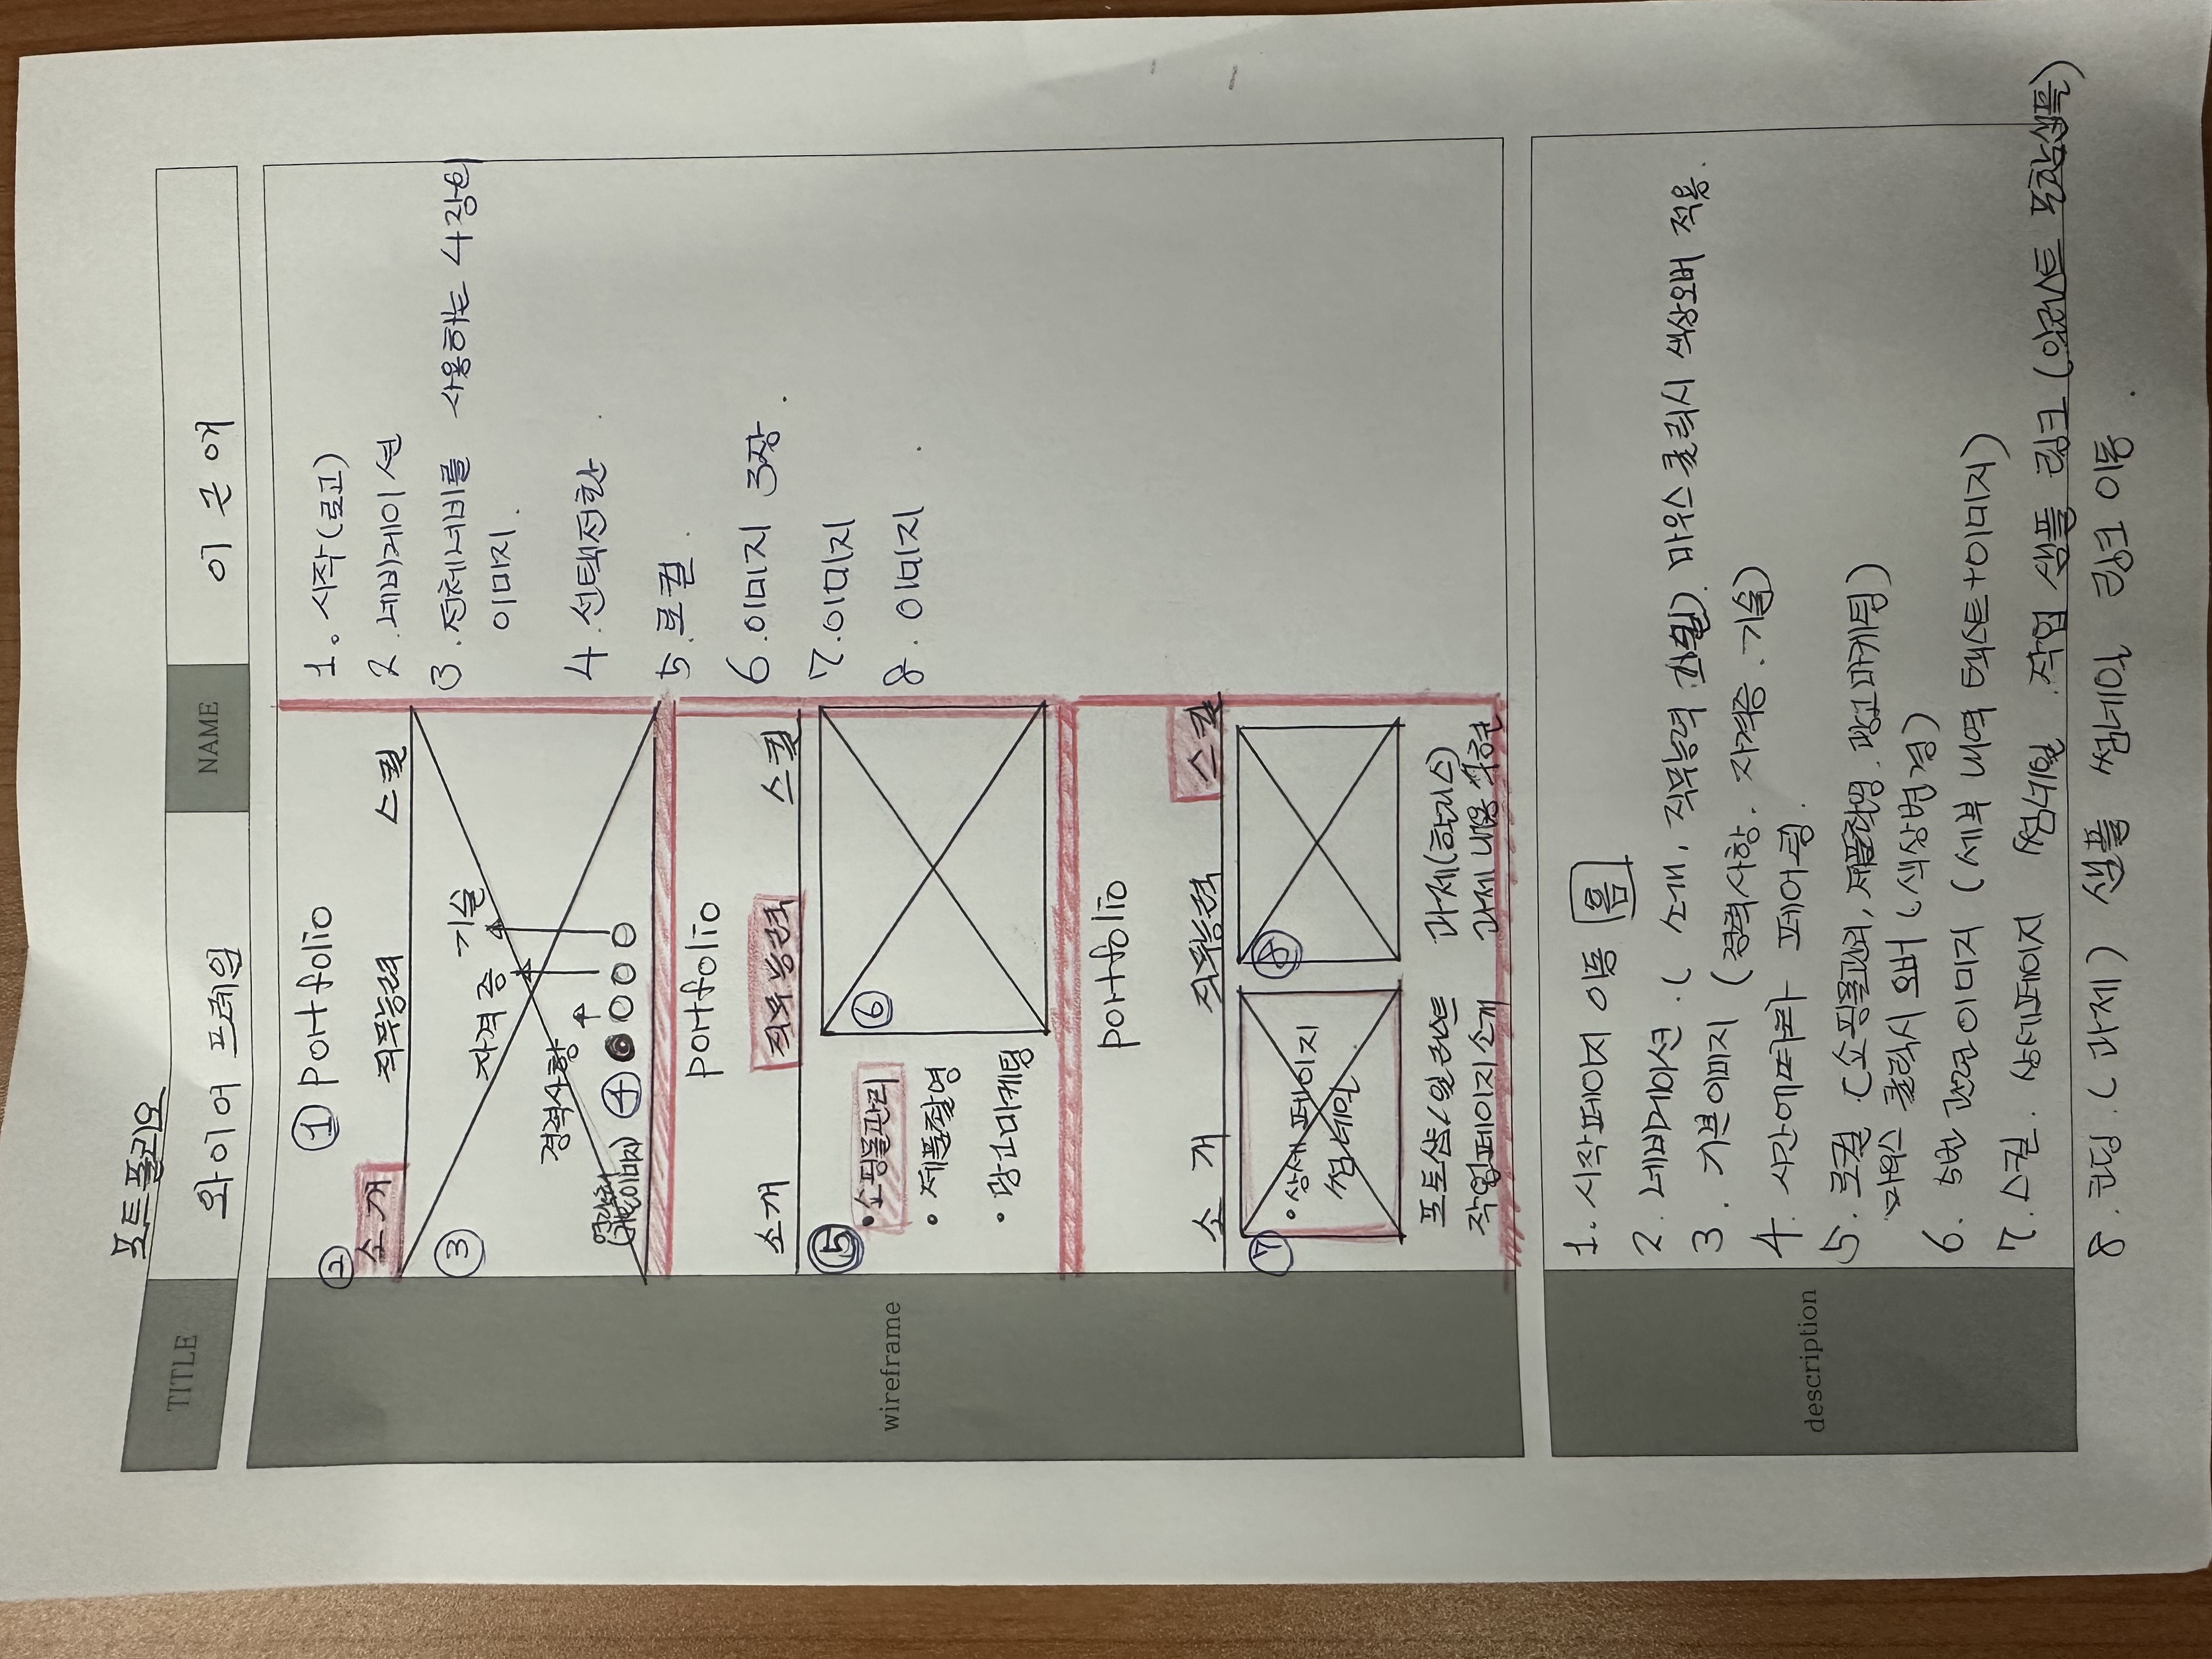 포트폴리오
TITLE
와이어 프레임
NAME
이 근 애
wireframe
① portfolio
②
소개 직무능력 스킬
③
기술
자격증
경력사항
연락처
(기본이미지)
④
portfolio
소개 직무능력 스킬
⑤
• 쇼핑몰관리
• 제품촬영
• 광고마케팅
⑥
portfolio
소 개 직무능력 스킬
⑦
• 상세 페이지
썸네일
⑧
포토샵/일러스트
작업페이지 소개
과제(한리스)
과제 내용 구현
1. 시작(로고)
2. 네비게이션
3. 전체너비를 사용하는 4장의
이미지.
4. 선택전환.
5. 로컬.
6. 이미지 3장.
7. 이미지
8. 이미지.
description
1. 시작페이지 이동 홈
2. 네비게이션. ( 소개, 직무능력 스킬). 마우스 클릭시 색상오버 적용.
3. 기본이미지 (경력사항. 자격증. 기술)
4. 시간에따라 페어링.
5. 로컬. (쇼핑몰관리, 제품촬영. 광고마케팅)
마우스 클릭시 오버 (색상변경)
6. 5번 관련이미지 (세부 내역 텍스트+이미지)
7. 스킬. 상세페이지 썸네일. 작업 샘플 링크 (일러스트 포함샘플)
8. 코딩. (과제) 샘플 썸네일 링크 이동.